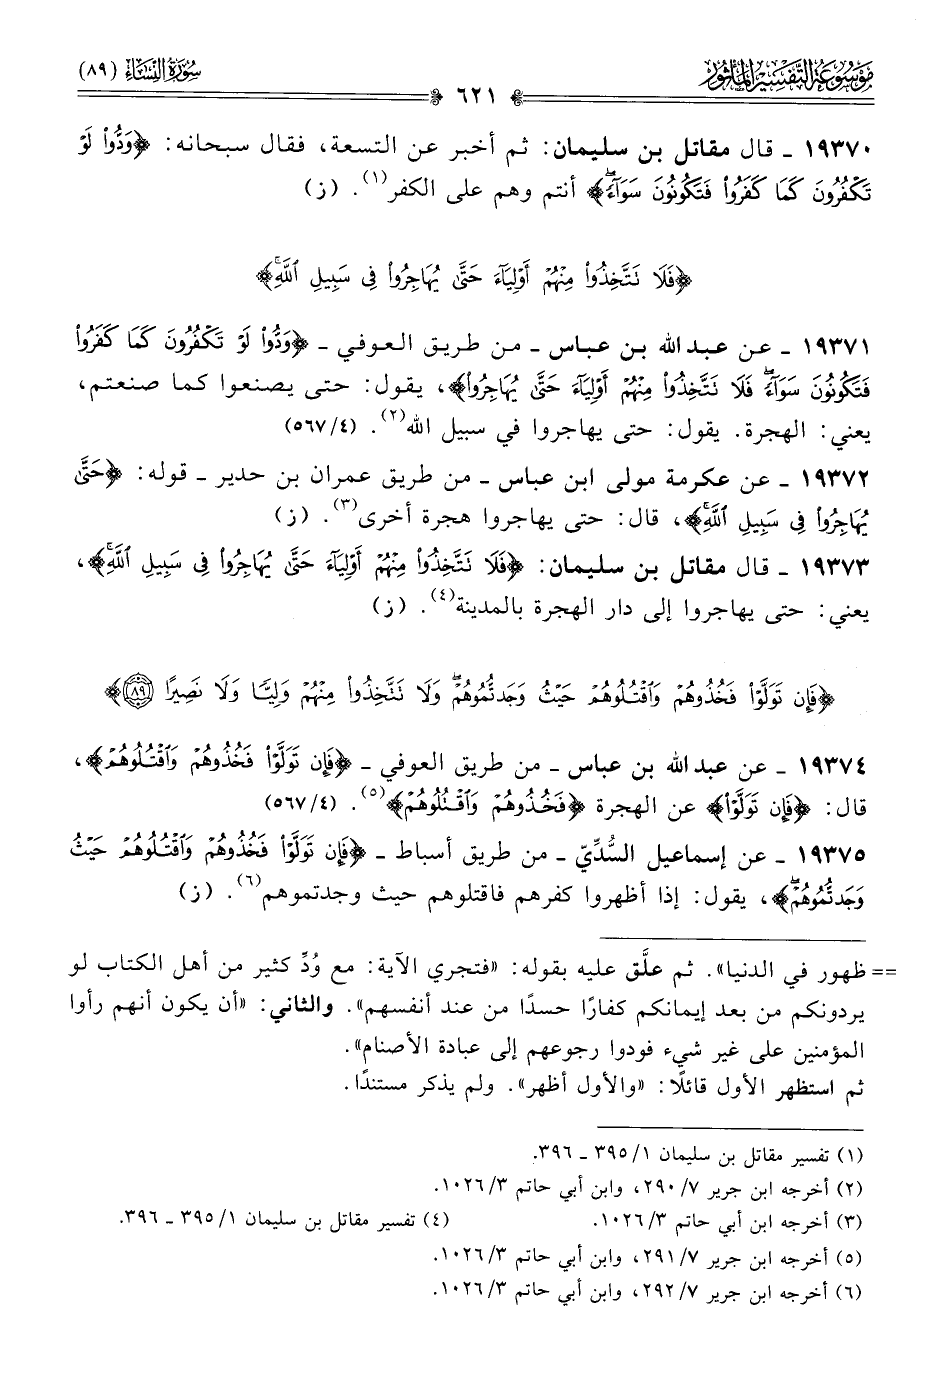 مَوْسُوعَةُ التَّفْسِيرِ المَأْثُورِ
٦٢١
سُورَةُ النِّسَاءِ (٨٩)
١٩٣٧٠ ـ قال مقاتل بن سليمان: ثم أخبر عن التسعة، فقال سبحانه: ﴿وَدُّوا۟ لَوْ
تَكْفُرُونَ كَمَا كَفَرُوا۟ فَتَكُونُونَ سَوَآءًۖ﴾ أنتم وهم على الكفر(١). (ز)
﴿فَلَا تَتَّخِذُوا۟ مِنْهُمْ أَوْلِيَآءَ حَتَّىٰ يُهَاجِرُوا۟ فِى سَبِيلِ ٱللَّهِۚ﴾
١٩٣٧١ ـ عن عبد الله بن عباس ـ من طريق العوفي ـ ﴿وَدُّوا۟ لَوْ تَكْفُرُونَ كَمَا كَفَرُوا۟
فَتَكُونُونَ سَوَآءًۖ فَلَا تَتَّخِذُوا۟ مِنْهُمْ أَوْلِيَآءَ حَتَّىٰ يُهَاجِرُوا۟﴾، يقول: حتى يصنعوا كما صنعتم،
يعني: الهجرة. يقول: حتى يهاجروا في سبيل الله(٢). (٤/٥٦٧)
١٩٣٧٢ ـ عن عكرمة مولى ابن عباس ـ من طريق عمران بن حدير ـ قوله: ﴿حَتَّىٰ
يُهَاجِرُوا۟ فِى سَبِيلِ ٱللَّهِۚ﴾، قال: حتى يهاجروا هجرة أخرى(٣). (ز)
١٩٣٧٣ ـ قال مقاتل بن سليمان: ﴿فَلَا تَتَّخِذُوا۟ مِنْهُمْ أَوْلِيَآءَ حَتَّىٰ يُهَاجِرُوا۟ فِى سَبِيلِ ٱللَّهِۚ﴾،
يعني: حتى يهاجروا إلى دار الهجرة بالمدينة(٤). (ز)
﴿فَإِن تَوَلَّوْا۟ فَخُذُوهُمْ وَٱقْتُلُوهُمْ حَيْثُ وَجَدتُّمُوهُمْۖ وَلَا تَتَّخِذُوا۟ مِنْهُمْ وَلِيًّا وَلَا نَصِيرًا ٨٩﴾
١٩٣٧٤ ـ عن عبد الله بن عباس ـ من طريق العوفي ـ ﴿فَإِن تَوَلَّوْا۟ فَخُذُوهُمْ وَٱقْتُلُوهُمْ﴾،
قال: ﴿فَإِن تَوَلَّوْا۟﴾ عن الهجرة ﴿فَخُذُوهُمْ وَٱقْتُلُوهُمْ﴾(٥). (٤/٥٦٧)
١٩٣٧٥ ـ عن إسماعيل السُّدِّيّ ـ من طريق أسباط ـ ﴿فَإِن تَوَلَّوْا۟ فَخُذُوهُمْ وَٱقْتُلُوهُمْ حَيْثُ
وَجَدتُّمُوهُمْۖ﴾، يقول: إذا أظهروا كفرهم فاقتلوهم حيث وجدتموهم(٦). (ز)
== ظهور في الدنيا». ثم علَّق عليه بقوله: «فتجري الآية: مع وُدِّ كثير من أهل الكتاب لو
يردونكم من بعد إيمانكم كفارًا حسدًا من عند أنفسهم». والثاني: «أن يكون أنهم رأوا
المؤمنين على غير شيء فودوا رجوعهم إلى عبادة الأصنام».
ثم استظهر الأول قائلًا: «والأول أظهر». ولم يذكر مستندًا.
(١) تفسير مقاتل بن سليمان ١/ ٣٩٥ ـ ٣٩٦.
(٢) أخرجه ابن جرير ٧/ ٢٩٠، وابن أبي حاتم ٣/ ١٠٢٦.
(٣) أخرجه ابن أبي حاتم ٣/ ١٠٢٦. (٤) تفسير مقاتل بن سليمان ١/ ٣٩٥ ـ ٣٩٦.
(٥) أخرجه ابن جرير ٧/ ٢٩١، وابن أبي حاتم ٣/ ١٠٢٦.
(٦) أخرجه ابن جرير ٧/ ٢٩٢، وابن أبي حاتم ٣/ ١٠٢٦.